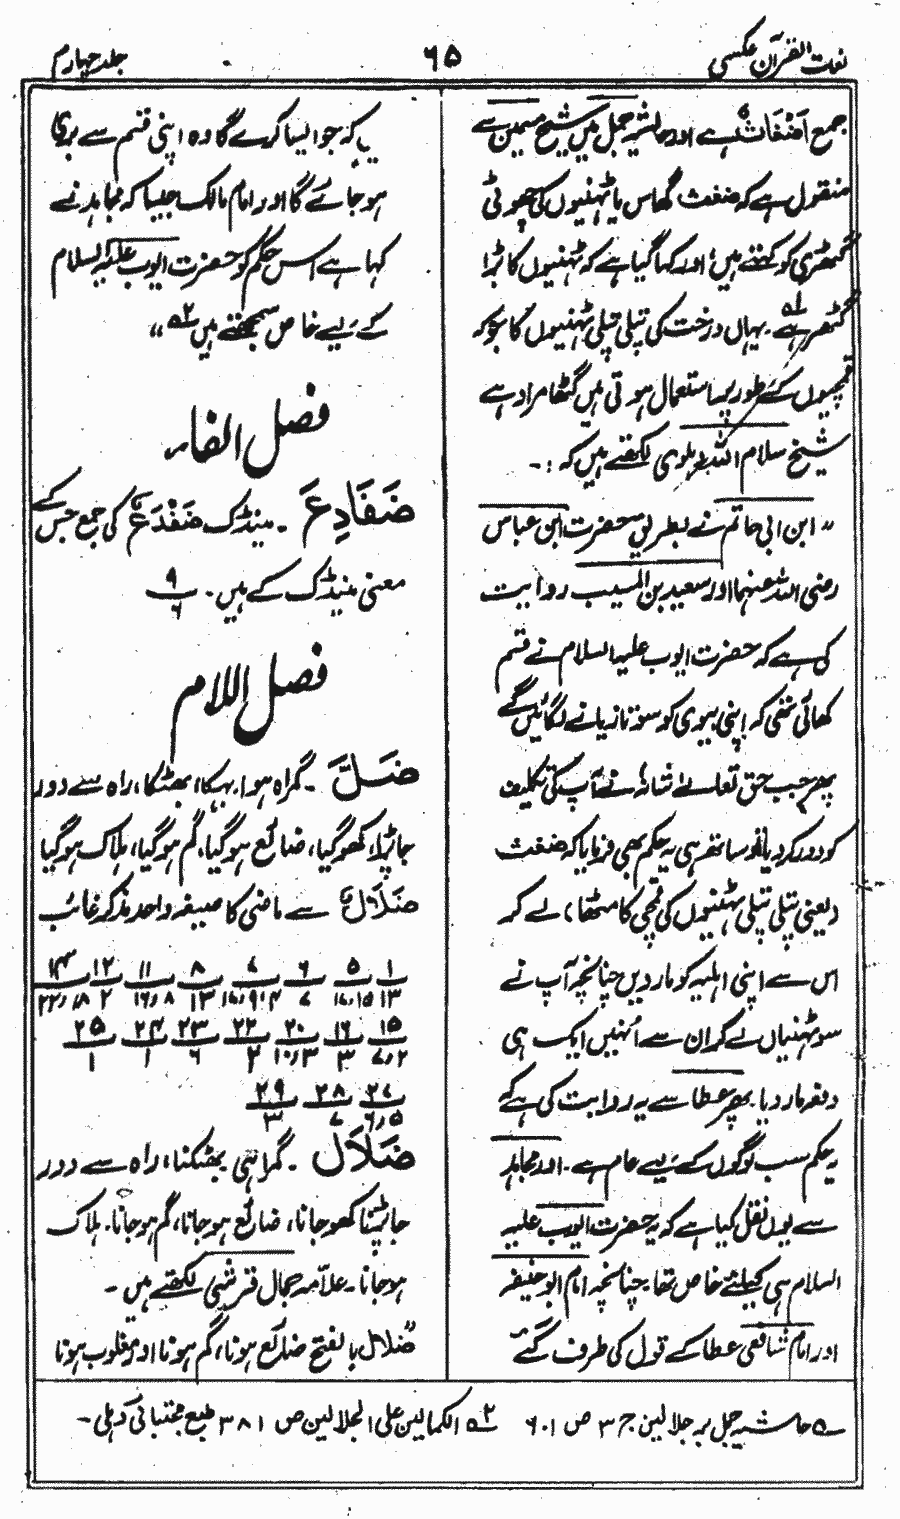 لغت القرآن عکسی
۶۵
جلد چہارم
جمع اَضْغَاثٌ ہے اور حاشیہ جمل میں شیخ سمین سے
منقول ہے کہ ضغث گھاس یا ٹہنیوں کی چھوٹی
گٹھڑی کو کہتے ہیں، اور کہا گیا ہے کہ ٹہنیوں کا بڑا
گٹھر ہے ۱؎ ۔ یہاں درخت کی پتلی پتلی ٹہنیوں کا جو کہ
قمچیوں کے طور پر استعمال ہوتی ہیں گٹھا مراد ہے
شیخ سلام اللہ دہلوی لکھتے ہیں کہ :۔
” ابن ابی حاتم نے بطریق حضرت ابن عباس
رضی اللہ عنہما اور سعید بن المسیب روایت
کی ہے کہ حضرت ایوب علیہ السلام نے قسم
کھائی تھی کہ اپنی بیوی کو سو تازیانے لگائیں گے
پھر جب حق تعالےٰ شانہ نے آپ کی تکلیف
کو دور کر دیا تو ساتھ ہی یہ حکم بھی فرمایا کہ ضغث
(یعنی پتلی پتلی ٹہنیوں کی قمچی کا مٹھا) لے کر
اس سے اپنی اہلیہ کو مار دیں چنانچہ آپ نے
سو ٹہنیاں لے کر ان سے انہیں ایک ہی
دفعہ مار دیا۔ پھر عطا سے یہ روایت کی ہے کہ
یہ حکم سب لوگوں کے لیے عام ہے۔ اور مجاہد
سے یوں نقل کیا ہے کہ یہ حضرت ایوب علیہ
السلام ہی کیلئے خاص تھا۔ چنانچہ امام ابو حنیفہ
اور امام شافعی عطا کے قول کی طرف گئے
ہیں کہ جو ایسا کرے گا وہ اپنی قسم سے بری
ہو جائے گا اور امام مالک جیسا کہ مجاہد نے
کہا ہے اس حکم کو حضرت ایوب علیہ السلام
کے لیے خاص سمجھتے ہیں ۲؎ “
فصل الفاء
ضَفَادِعَ ۔ مینڈک ضَفْدَعٌ کی جمع جس کے
معنی مینڈک کے ہیں۔ ۹/۶
فصل اللام
ضَلَّ ۔ گمراہ ہوا، بہکا، بھٹکا، راہ سے دور
جا پڑا، کھو گیا، ضائع ہو گیا، گم ہو گیا، ہلاک ہو گیا
ضَلَالٌ سے ماضی کا صیغہ واحد مذکر غائب
۱/۱۳ ۵/۱۵،۱۷ ۶/۷ ۷/۴،۹،۱۷ ۸/۱۳ ۱۱/۸،۱۶ ۱۲/۲ ۱۴/۱۸،۲۲
۱۵/۲،۷ ۱۶/۳ ۲۰/۳،۱۰ ۲۲/۲ ۲۳/۶ ۲۴/۱ ۲۵/۱
۲۷/۵،۶ ۲۸/۷ ۲۹/۳
ضَلَالَ ۔ گمراہی، بھٹکنا، راہ سے دور
جا پڑنا کھو جانا، ضائع ہو جانا، گم ہو جانا۔ ہلاک
ہو جانا۔ علامہ جمال قرشی لکھتے ہیں ۔
”ضلال بالفتح ضائع ہونا، گم ہونا اور مغلوب ہونا
۱؎ حاشیہ جمل بر جلالین ج ۳ ص ۶۰۱
۲؎ الکمالین علی الجلالین ص ۳۸۱ طبع مجتبائی دہلی ۔